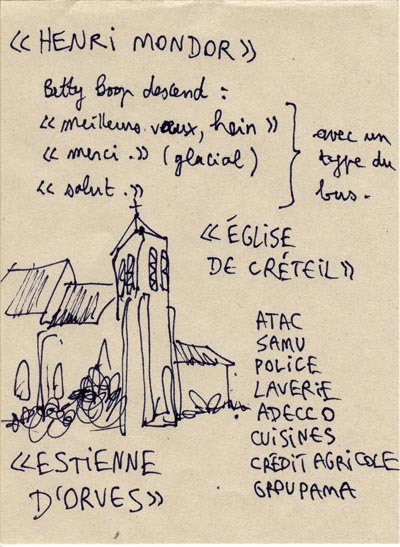 « HENRI MONDOR »
Betty Boop descend :
« meilleurs vœux, hein »
« merci. » (glacial)
« salut. »
avec un
type du
bus.
« ÉGLISE
DE CRÉTEIL »
ATAC
SAMU
POLICE
LAVERIE
ADECCO
CUISINES
CRÉDIT AGRICOLE
GROUPAMA
« ESTIENNE
D'ORVES »